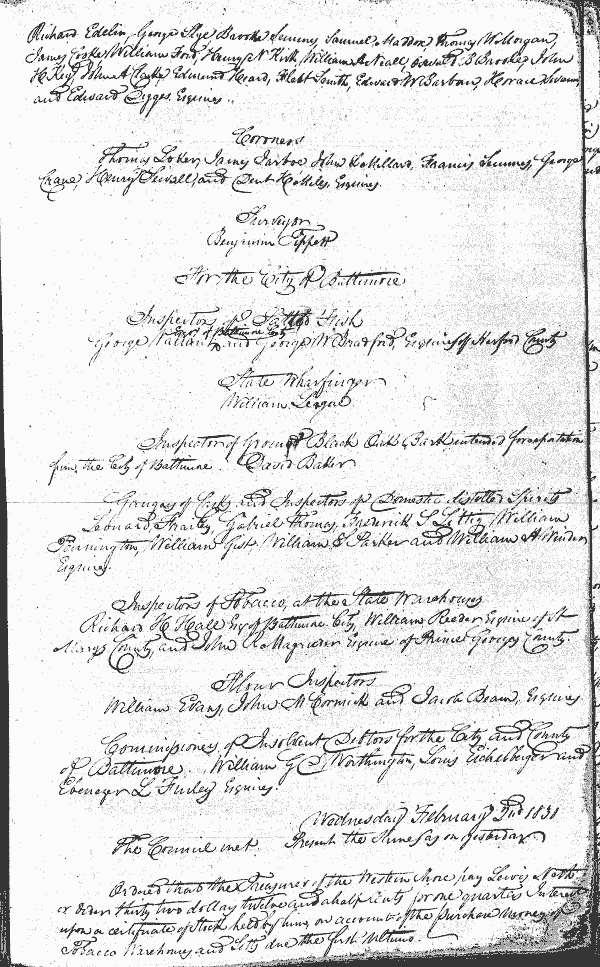 Richard Edelin, George Slye Brooke Semmes, Samuel Maddox, Thomas W. Morgan,
James Cooke William Ford, Henry N Kirk, William A Neall, B Brooke, John
H Key John A Edmund Heard, Smith, Edward W. Barber, Horace
and Edward Digges. Esquires..
Coroners
Thomas Loker, James Jarboe John K Millard, Francis Semmes, George
Crane, Henry Sewall, and Dent H Miles, Esquires.
Surveyor
Benjamin Tippett
For the City of Baltimore
Inspectors of Salted Fish
Esqr of Baltimore City
George Valiant and George W Bradford, Esquire of Harford County
State Wharfinger
William
Inspector of Ground Black Oak Bark intended for exportation
from the City of Baltimore. David Baker
Gaugers of Casks and Inspectors of Domestic distilled Spirits
Leonard Frailey, Gabriel Thomas, Frederick S Littig, William
Pennington, William Gist, William Parker and William H Winder
Esquires.
Inspectors of Tobacco, at the State Warehouses
Richard H Hall Esqr of Baltimore City, William Reeder Esquire of St
Marys County, and John R Magruder Esquire of Prince Georges County.
Flour Inspectors
William Evans, John McCormick and Jacob Beam, Esquires
Commissioners of Insolvent Debtors for the City and County
of Baltimore. William G D Worthington, Louis Eichelberger and
Ebenezer L Finley Esquires.
Wednesday February 2nd 1831
The Council met. Present the same as on yesterday
Ordered that the Treasurer of the Western Shore pay Lewis Neth
or order thirty two dollars twelve and a half cents for one quarters Interest
upon a certificate of Stock held by him, on account of the purchase money of
Tobacco Warehouses and Lots due the first ultimo.